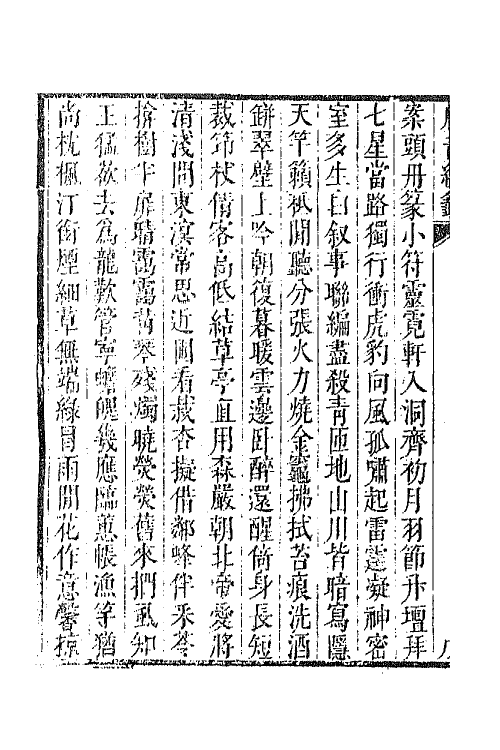 案頭丹篆小符靈霓軒入洞齊初月羽節升壇拜
七星當路獨行衝虎豹向風孤嘯起雷霆凝神密
室多生白敘事聯編盡殺青匝地山川皆暗寫隱
天竽籟秪閒聽分張火力燒金竈拂拭苔痕洗酒
缾翠壁上吟朝復暮暖雲邊臥醉還醒倚身長短
裁筇杖倩客高低結草亭直用森嚴朝北帝愛將
清淺問東溟常思近圃看栽杏擬借鄰峰伴采苓
揜樹半扉晴靄靄背琴殘燭曉熒熒舊來捫虱知
王猛欲去為龍歎管寧蟾魄幾應臨蕙帳漁竿猶
尚枕楓汀銜煙細草無端綠冒雨閒花作意馨掠